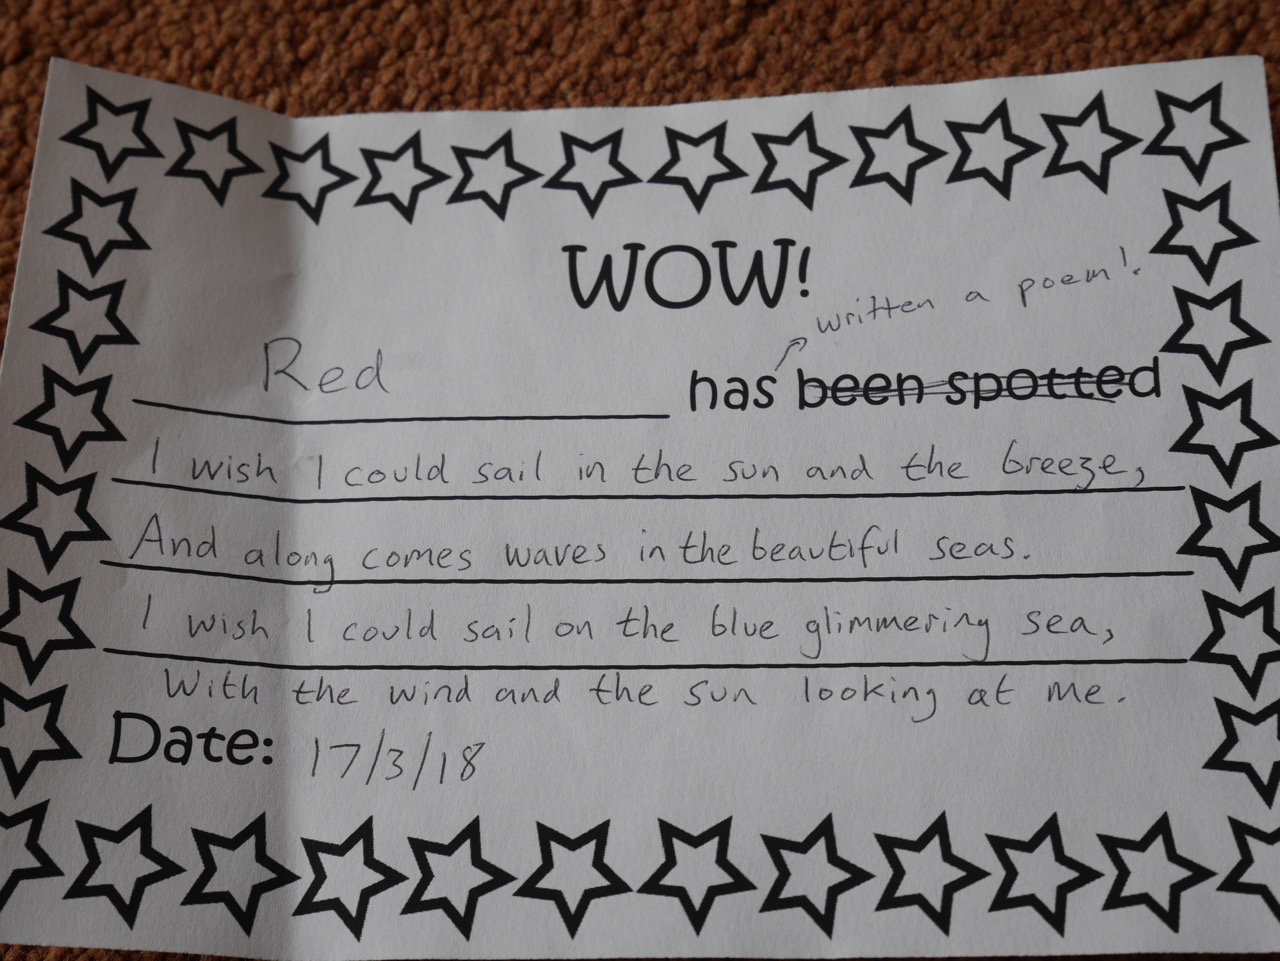 WOW!
written a poem!
Red has been spotted
I wish I could sail in the sun and the breeze,
And along comes waves in the beautiful seas.
I wish I could sail on the blue glimmering sea,
With the wind and the sun looking at me.
Date: 17/3/18